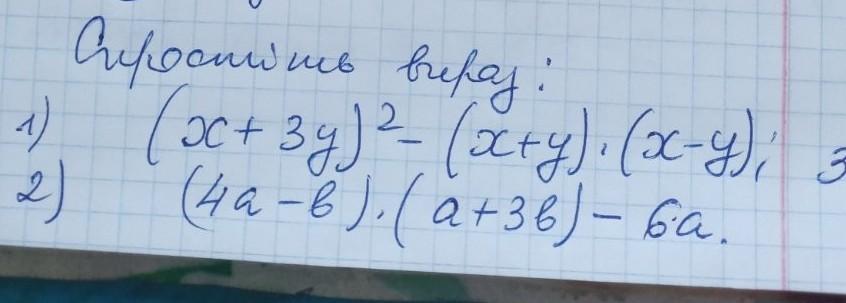 Спростіть вираз:
1) (x + 3y)² - (x+y)·(x-y);
2) (4a - b)·(a+3b) - 6·a.